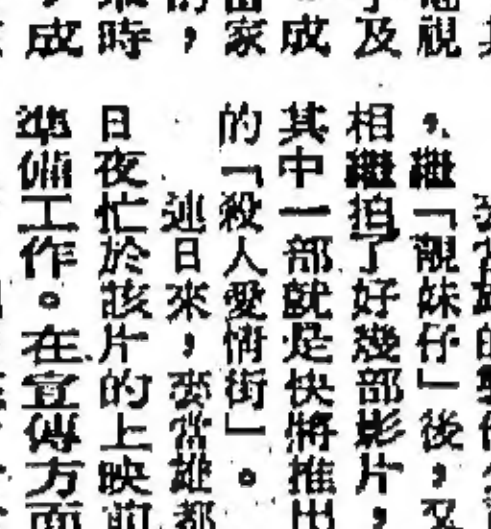 視
，繼「靚妹仔」後，又
及
相繼拍了好幾部影片，
成
其中一部就是快將推出
家
的「殺人愛情街」。
，
連日來，麥當雄都
時
日夜忙於該片的上映前
成
準備工作。在宣傳方面